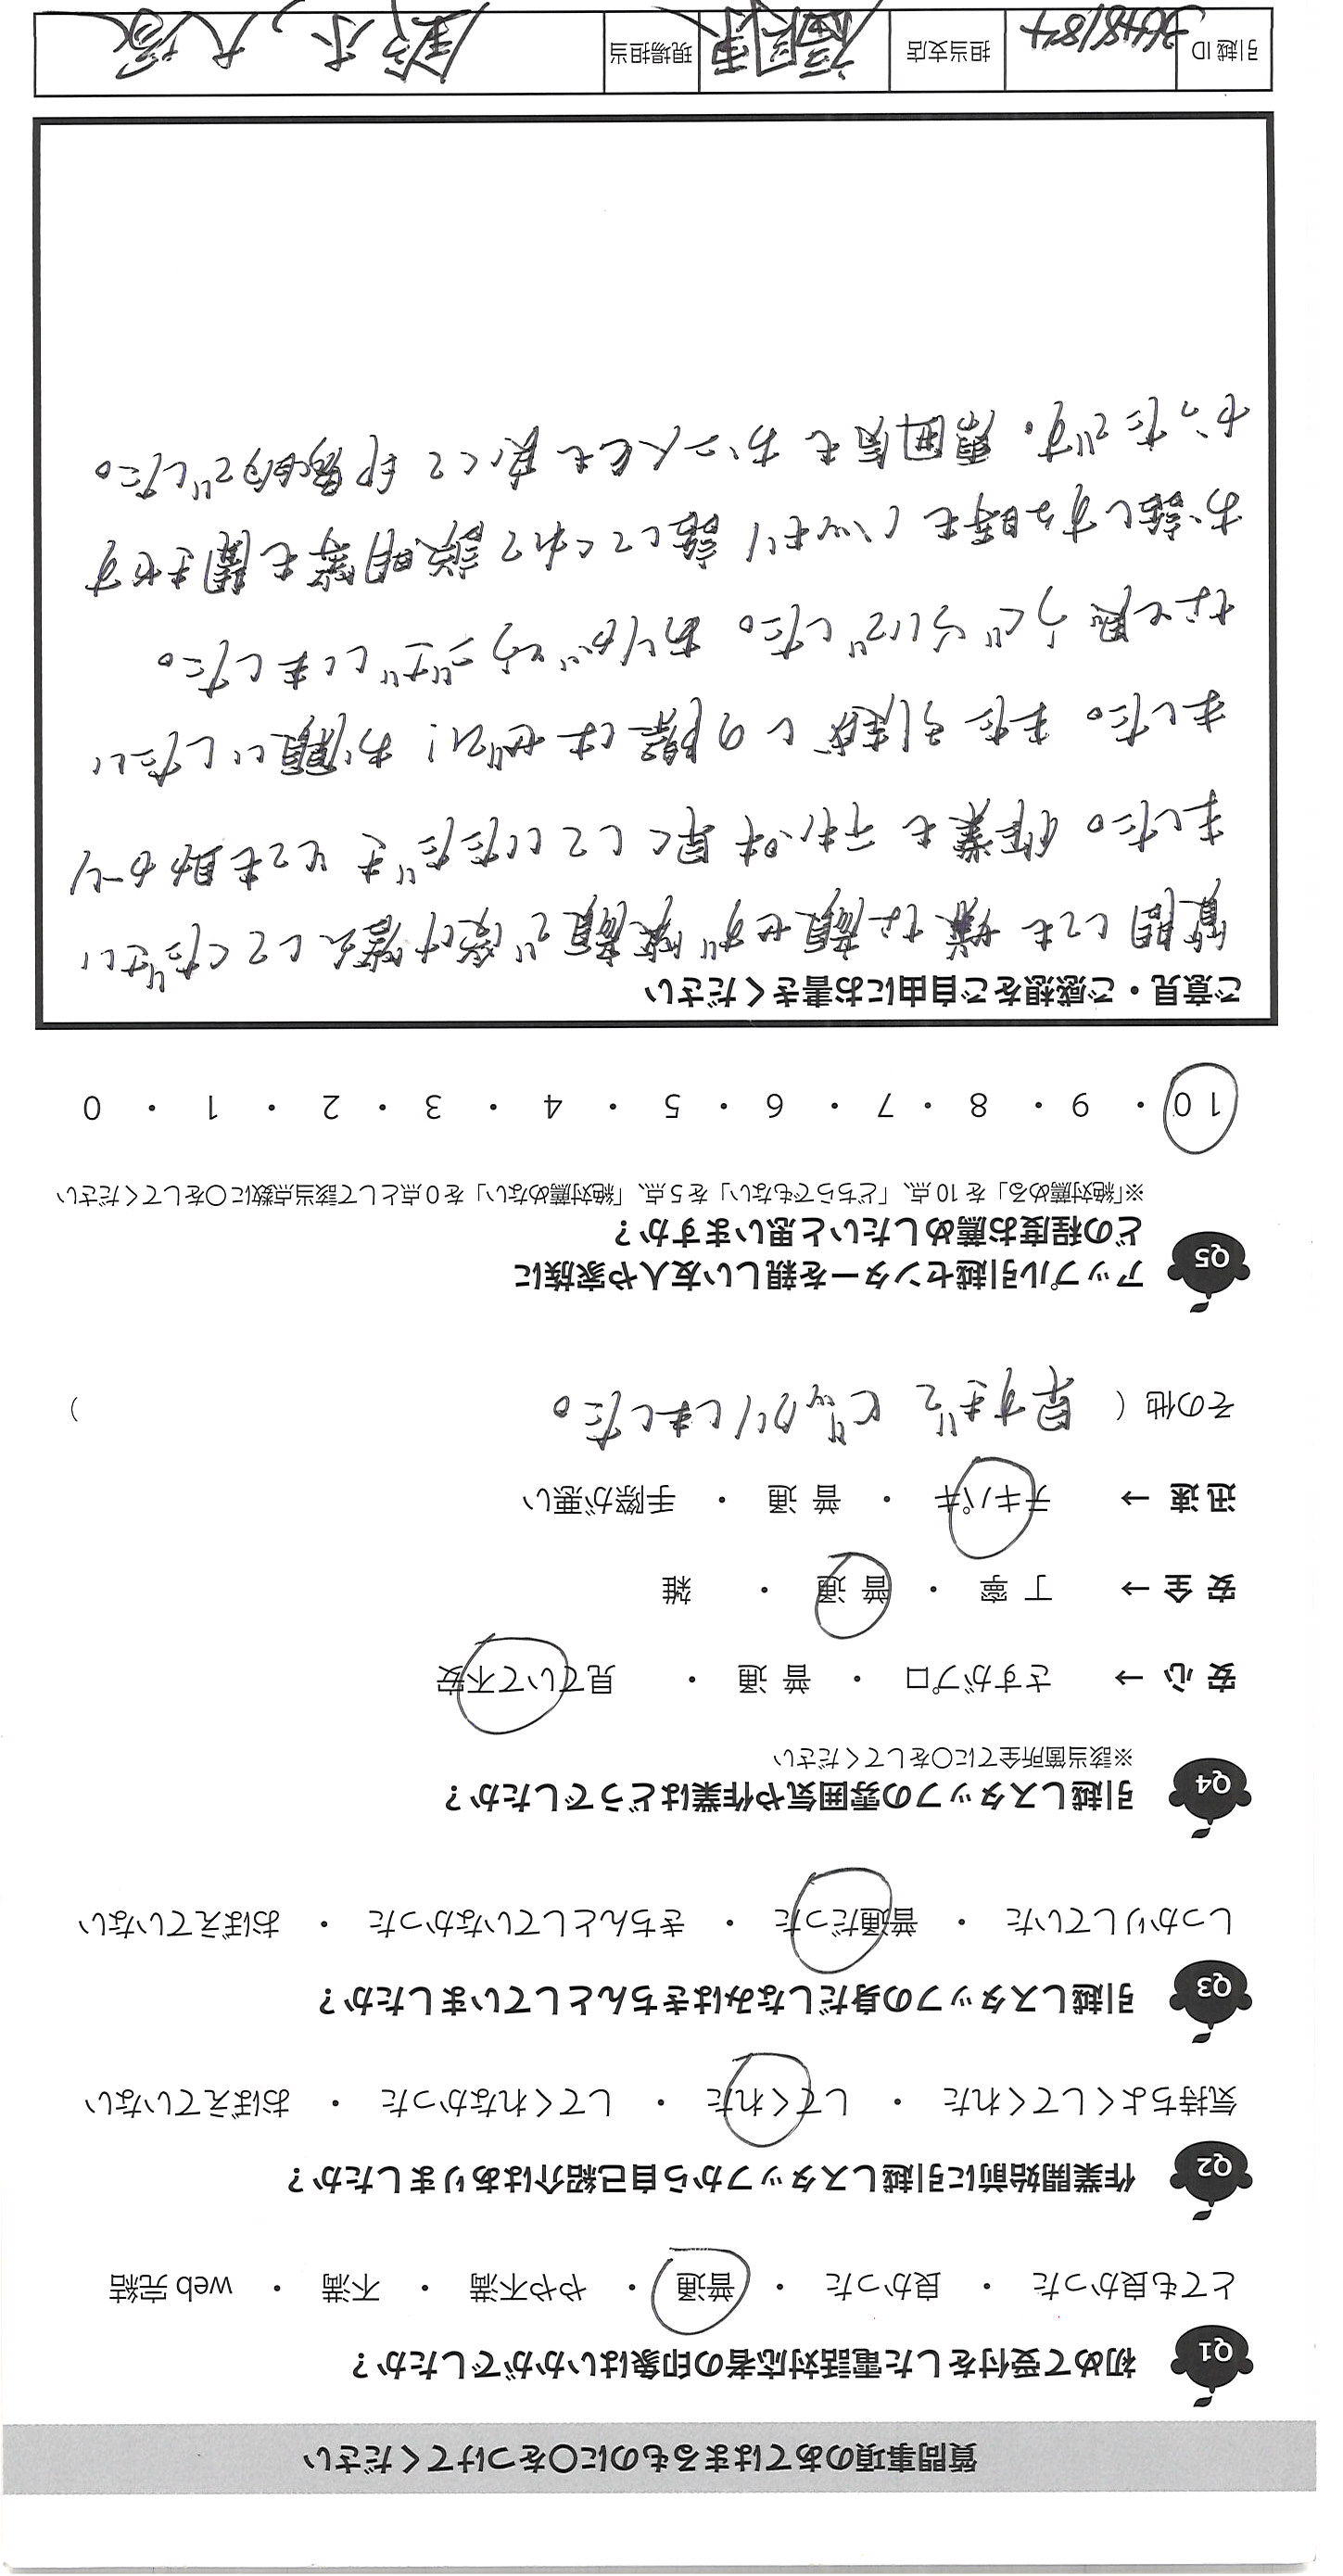 質問事項のあてはまるものに○をつけてください
Q1 初めて受付をした電話対応者の印象はいかがでしたか？
とても良かった ・ 良かった ・ 普通 ・ やや不満 ・ 不満 ・ web 完結
Q2 作業開始前に引越しスタッフから自己紹介はありましたか？
気持ちよくしてくれた ・ してくれた ・ してくれなかった ・ おぼえていない
Q3 引越しスタッフの身だしなみはきちんとしていましたか？
しっかりしていた ・ 普通だった ・ きちんとしていなかった ・ おぼえていない
Q4 引越しスタッフの雰囲気や作業はどうでしたか？
※該当箇所全てに○をしてください
安 心 → さすがプロ ・ 普 通 ・ 見ていて不安
安 全 → 丁 寧 ・ 普 通 ・ 雑
迅 速 → テキパキ ・ 普 通 ・ 手際が悪い
その他 ( 早すぎて ビックリしました。 )
Q5 アップル引越センターを親しい友人や家族に
どの程度お薦めしたいと思いますか？
※「絶対薦める」を 10 点、「どちらでもない」を 5 点、「絶対薦めない」を 0 点として該当点数に○をしてください
10 ・ 9 ・ 8 ・ 7 ・ 6 ・ 5 ・ 4 ・ 3 ・ 2 ・ 1 ・ 0
ご意見・ご感想をご自由にお書きください
質問しても 嫌な顔せず 笑顔で 受け答えしてください
ました。作業も 手際早くしていただき とても助かり
ました。また 引越しの際はぜひ! お願いしたい
なと思うぐらいでした。ありがとうございました。
お話しする時も ハッキリ 話してくれて 説明等も聞きやす
かったです。雰囲気も お二人とも 良くて 印象的でした。
引越 ID 3648184 担当支店 福岡東 現場担当 鈴木, 大塚